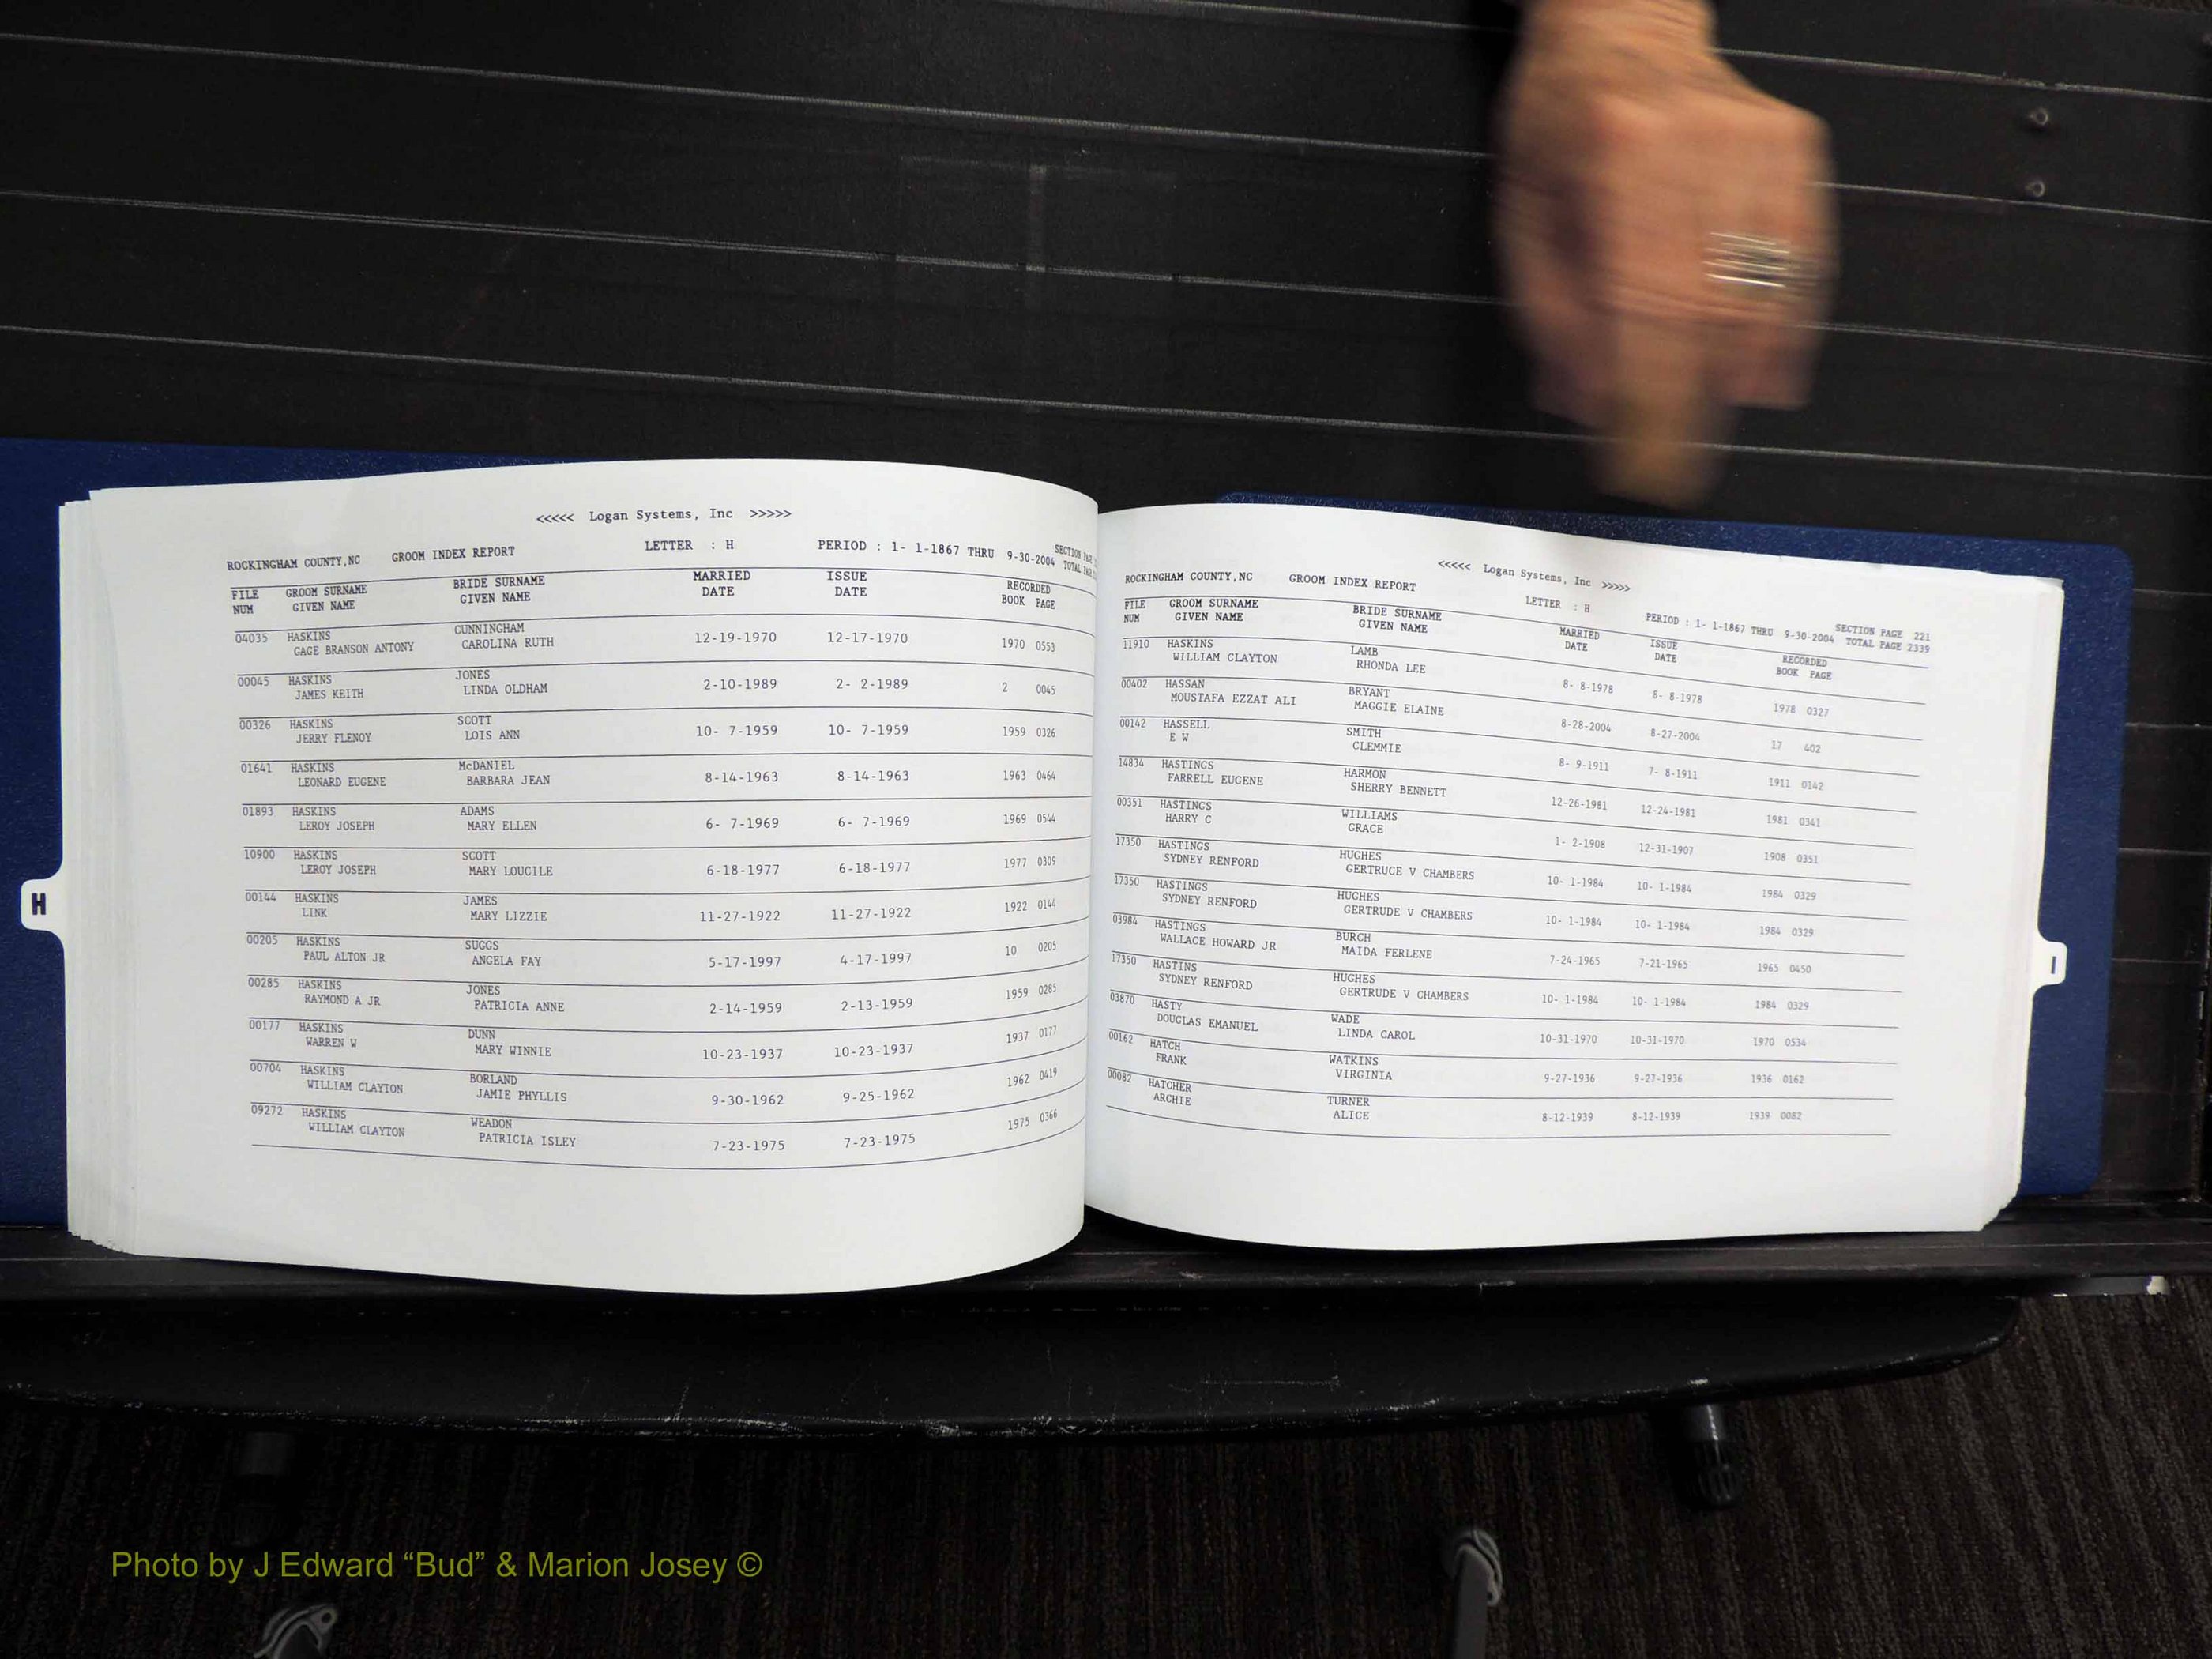 <<<<< Logan Systems, Inc >>>>>
ROCKINGHAM COUNTY,NC GROOM INDEX REPORT LETTER : H PERIOD : 1- 1-1867 THRU 9-30-2004 SECTION PAGE
TOTAL PAGE
FILE GROOM SURNAME BRIDE SURNAME MARRIED ISSUE RECORDED
NUM GIVEN NAME GIVEN NAME DATE DATE BOOK PAGE
04035 HASKINS CUNNINGHAM 12-19-1970 12-17-1970 1970 0553
GAGE BRANSON ANTONY CAROLINA RUTH
00045 HASKINS JONES 2-10-1989 2- 2-1989 2 0045
JAMES KEITH LINDA OLDHAM
00326 HASKINS SCOTT 10- 7-1959 10- 7-1959 1959 0326
JERRY FLENOY LOIS ANN
01641 HASKINS McDANIEL 8-14-1963 8-14-1963 1963 0464
LEONARD EUGENE BARBARA JEAN
01893 HASKINS ADAMS 6- 7-1969 6- 7-1969 1969 0544
LEROY JOSEPH MARY ELLEN
10900 HASKINS SCOTT 6-18-1977 6-18-1977 1977 0309
LEROY JOSEPH MARY LOUCILE
00144 HASKINS JAMES 11-27-1922 11-27-1922 1922 0144
LINK MARY LIZZIE
00205 HASKINS SUGGS 5-17-1997 4-17-1997 10 0205
PAUL ALTON JR ANGELA FAY
00285 HASKINS JONES 2-14-1959 2-13-1959 1959 0285
RAYMOND A JR PATRICIA ANNE
00177 HASKINS DUNN 10-23-1937 10-23-1937 1937 0177
WARREN W MARY WINNIE
00704 HASKINS BORLAND 9-30-1962 9-25-1962 1962 0419
WILLIAM CLAYTON JAMIE PHYLLIS
09272 HASKINS WEADON 7-23-1975 7-23-1975 1975 0366
WILLIAM CLAYTON PATRICIA ISLEY
H
<<<<< Logan Systems, Inc >>>>>
ROCKINGHAM COUNTY,NC GROOM INDEX REPORT LETTER : H PERIOD : 1- 1-1867 THRU 9-30-2004 SECTION PAGE 221
TOTAL PAGE 2339
FILE GROOM SURNAME BRIDE SURNAME MARRIED ISSUE RECORDED
NUM GIVEN NAME GIVEN NAME DATE DATE BOOK PAGE
11910 HASKINS LAMB 8- 8-1978 8- 8-1978 1978 0327
WILLIAM CLAYTON RHONDA LEE
00402 HASSAN BRYANT 8-28-2004 8-27-2004 17 402
MOUSTAFA EZZAT ALI MAGGIE ELAINE
00142 HASSELL SMITH 8- 9-1911 7- 8-1911 1911 0142
E W CLEMMIE
14834 HASTINGS HARMON 12-26-1981 12-24-1981 1981 0341
FARRELL EUGENE SHERRY BENNETT
00351 HASTINGS WILLIAMS 1- 2-1908 12-31-1907 1908 0351
HARRY C GRACE
17350 HASTINGS HUGHES 10- 1-1984 10- 1-1984 1984 0329
SYDNEY RENFORD GERTRUCE V CHAMBERS
17350 HASTINGS HUGHES 10- 1-1984 10- 1-1984 1984 0329
SYDNEY RENFORD GERTRUDE V CHAMBERS
03984 HASTINGS BURCH 7-24-1965 7-21-1965 1965 0450
WALLACE HOWARD JR MAIDA FERLENE
17350 HASTINS HUGHES 10- 1-1984 10- 1-1984 1984 0329
SYDNEY RENFORD GERTRUDE V CHAMBERS
03870 HASTY WADE 10-31-1970 10-31-1970 1970 0534
DOUGLAS EMANUEL LINDA CAROL
00162 HATCH WATKINS 9-27-1936 9-27-1936 1936 0162
FRANK VIRGINIA
00082 HATCHER TURNER 8-12-1939 8-12-1939 1939 0082
ARCHIE ALICE
I
Photo by J Edward “Bud” & Marion Josey ©